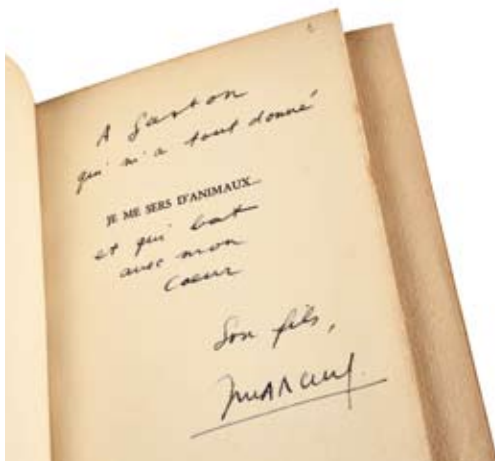 A Gaston
qui m'a tout donné
JE ME SERS D'ANIMAUX...
et qui bat
avec mon
coeur
Son fils,